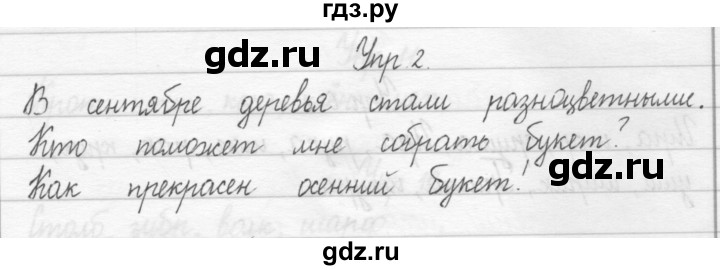 гдз.ру
gdz.ru
Упр 2.
В сентябре деревья стали разноцветными.
gdz.ru
Кто поможет мне собрать букет?
gdz.ru
Как прекрасен осенний букет!
gdz.ru
gdz.ru